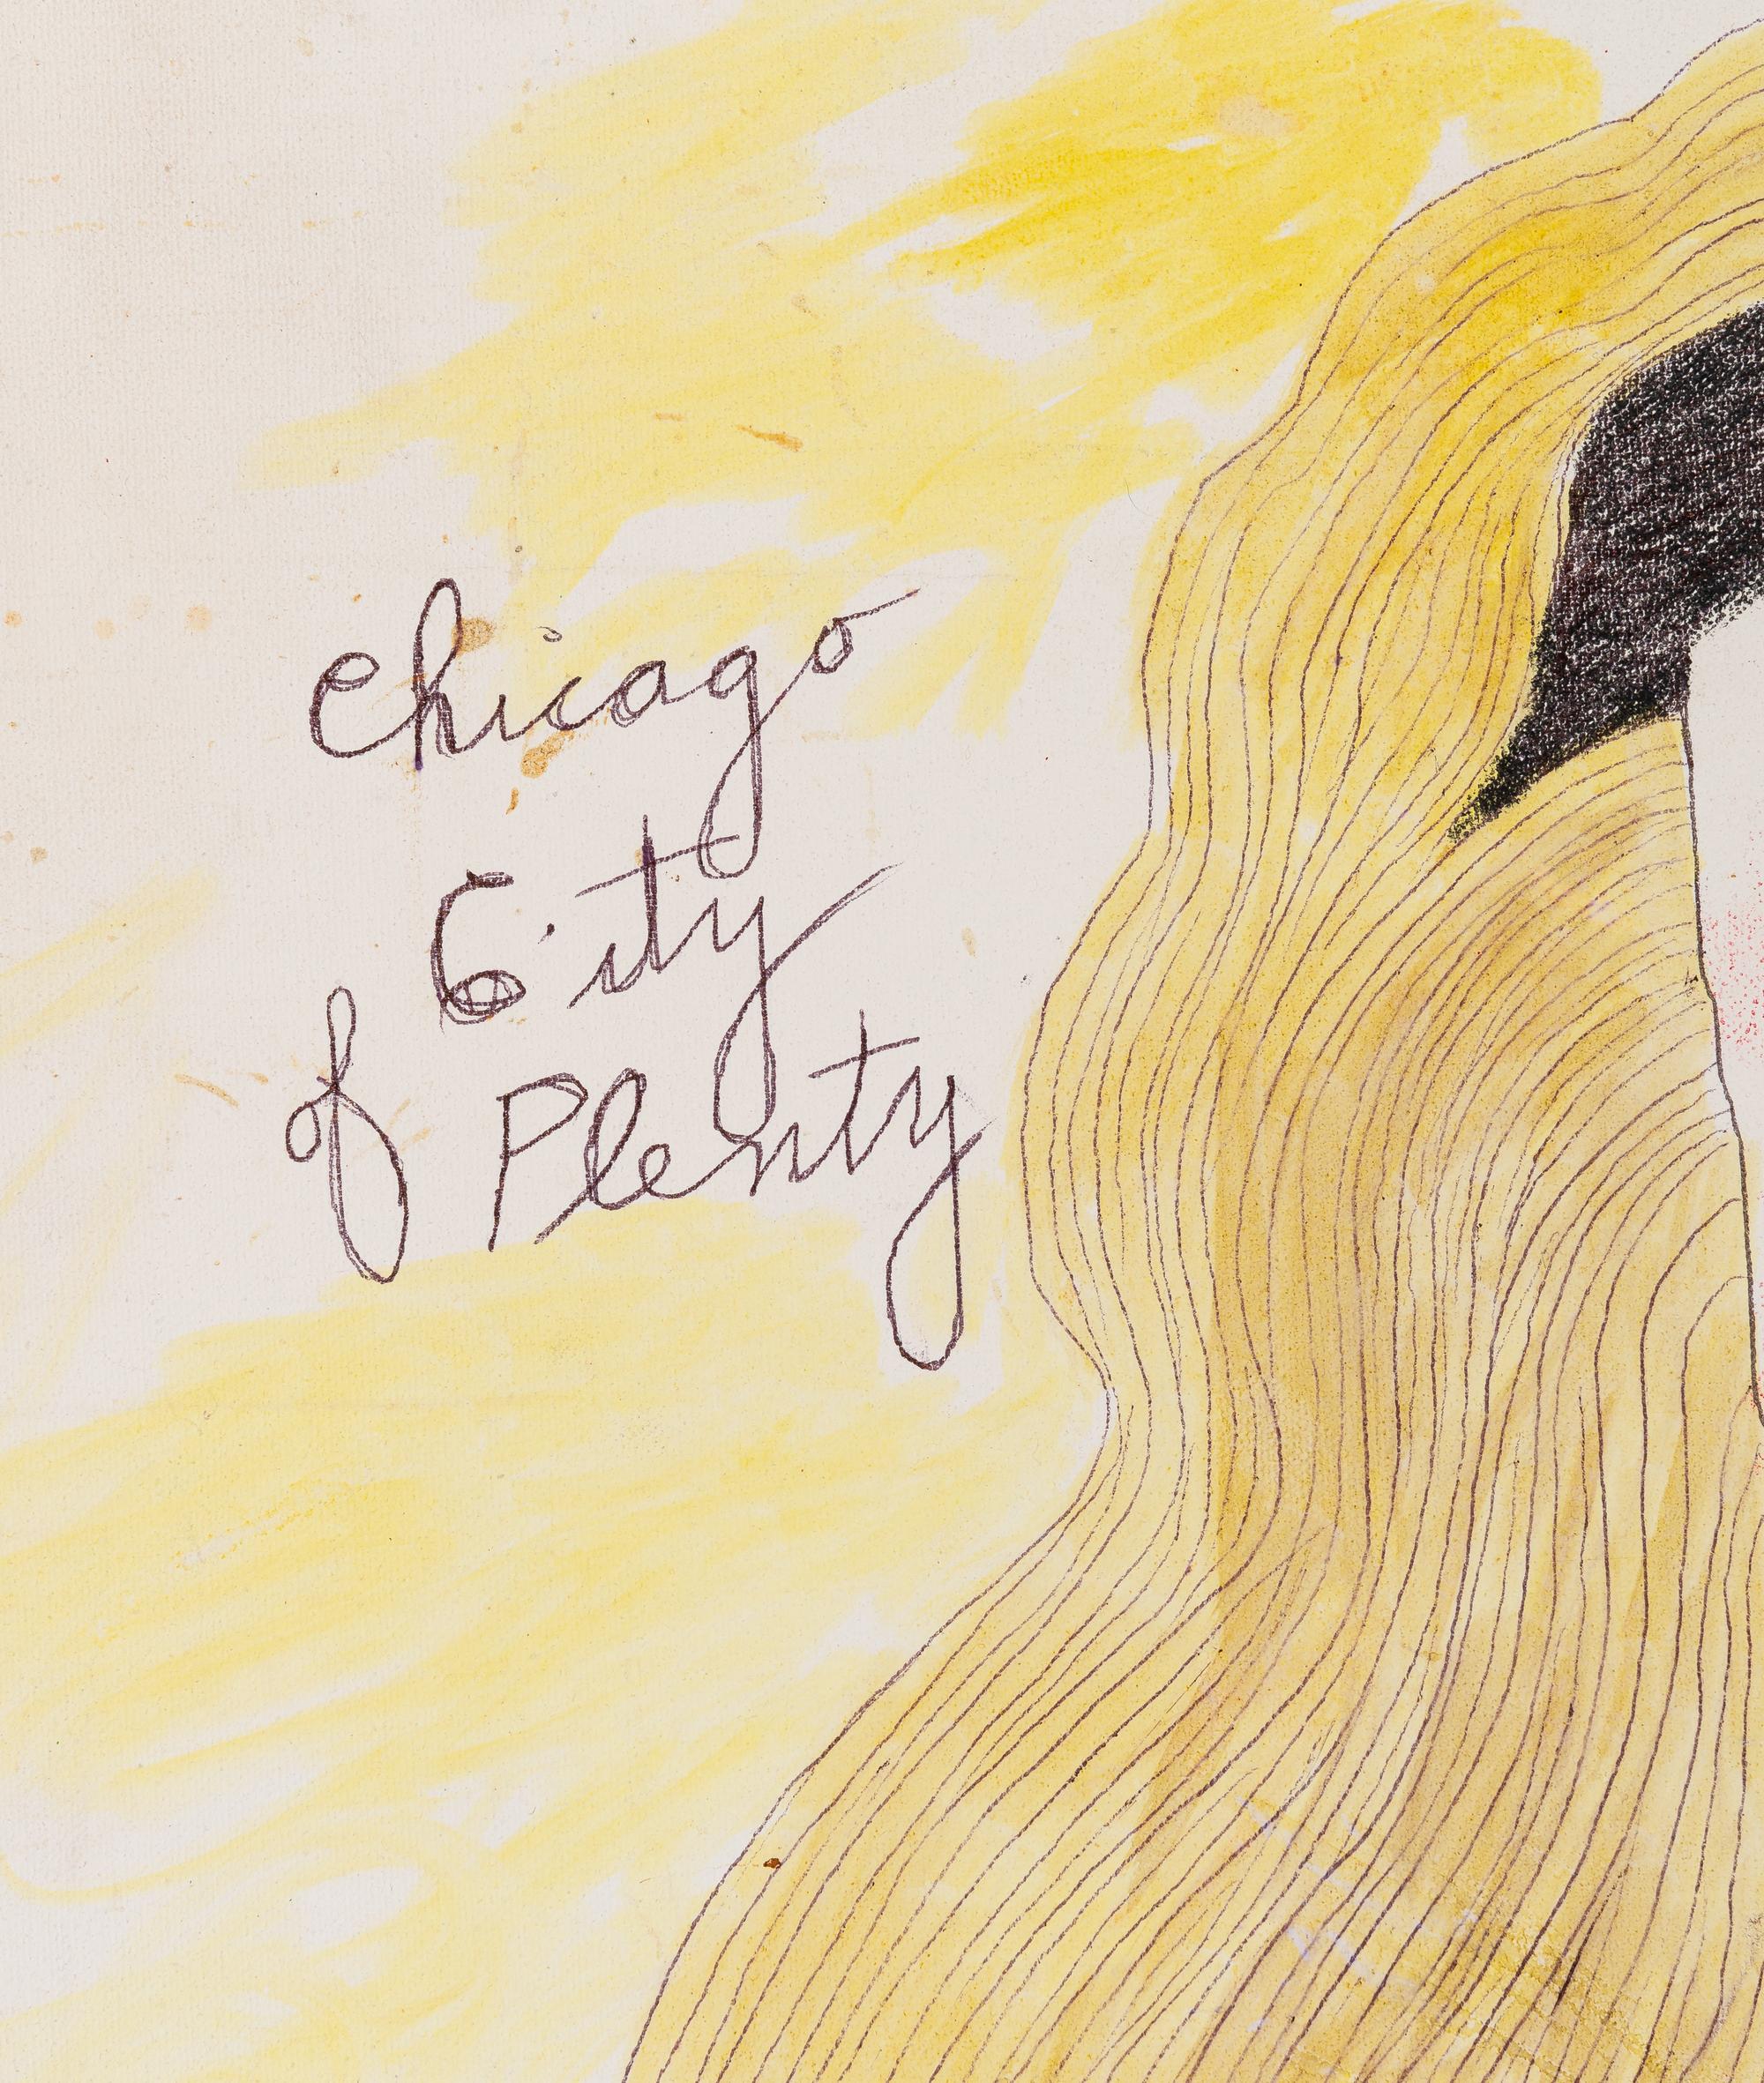 Chicago
City
of Plenty